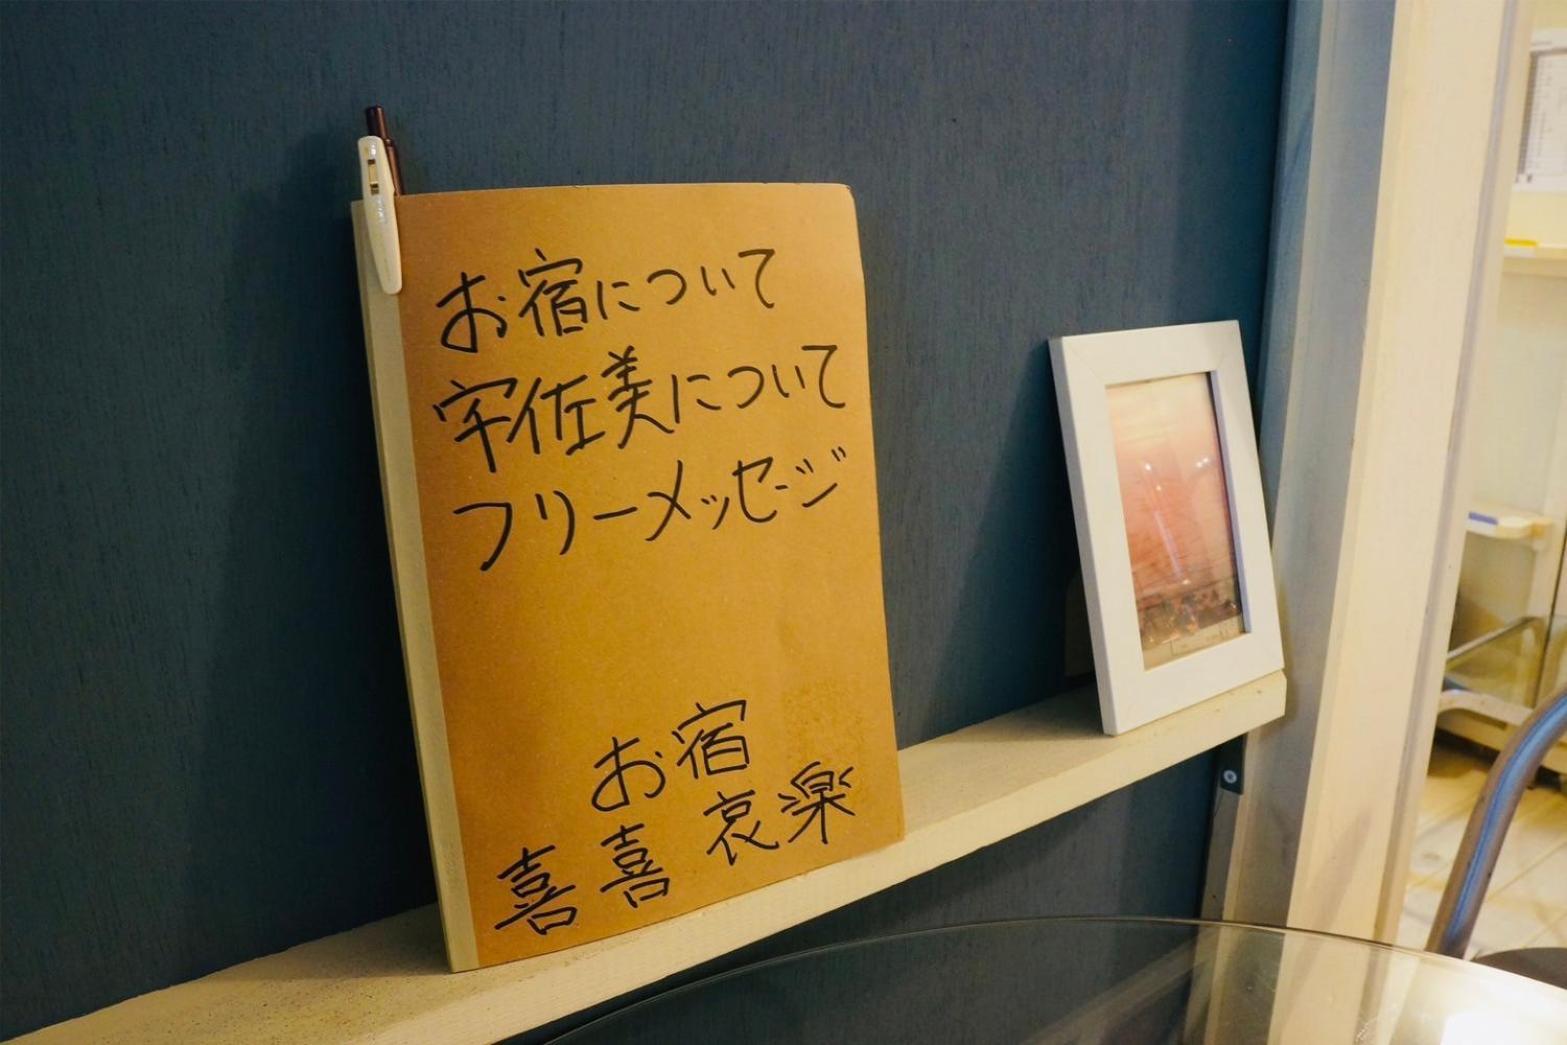 お宿について
宇佐美について
フリーメッセージ
お宿
喜喜哀楽